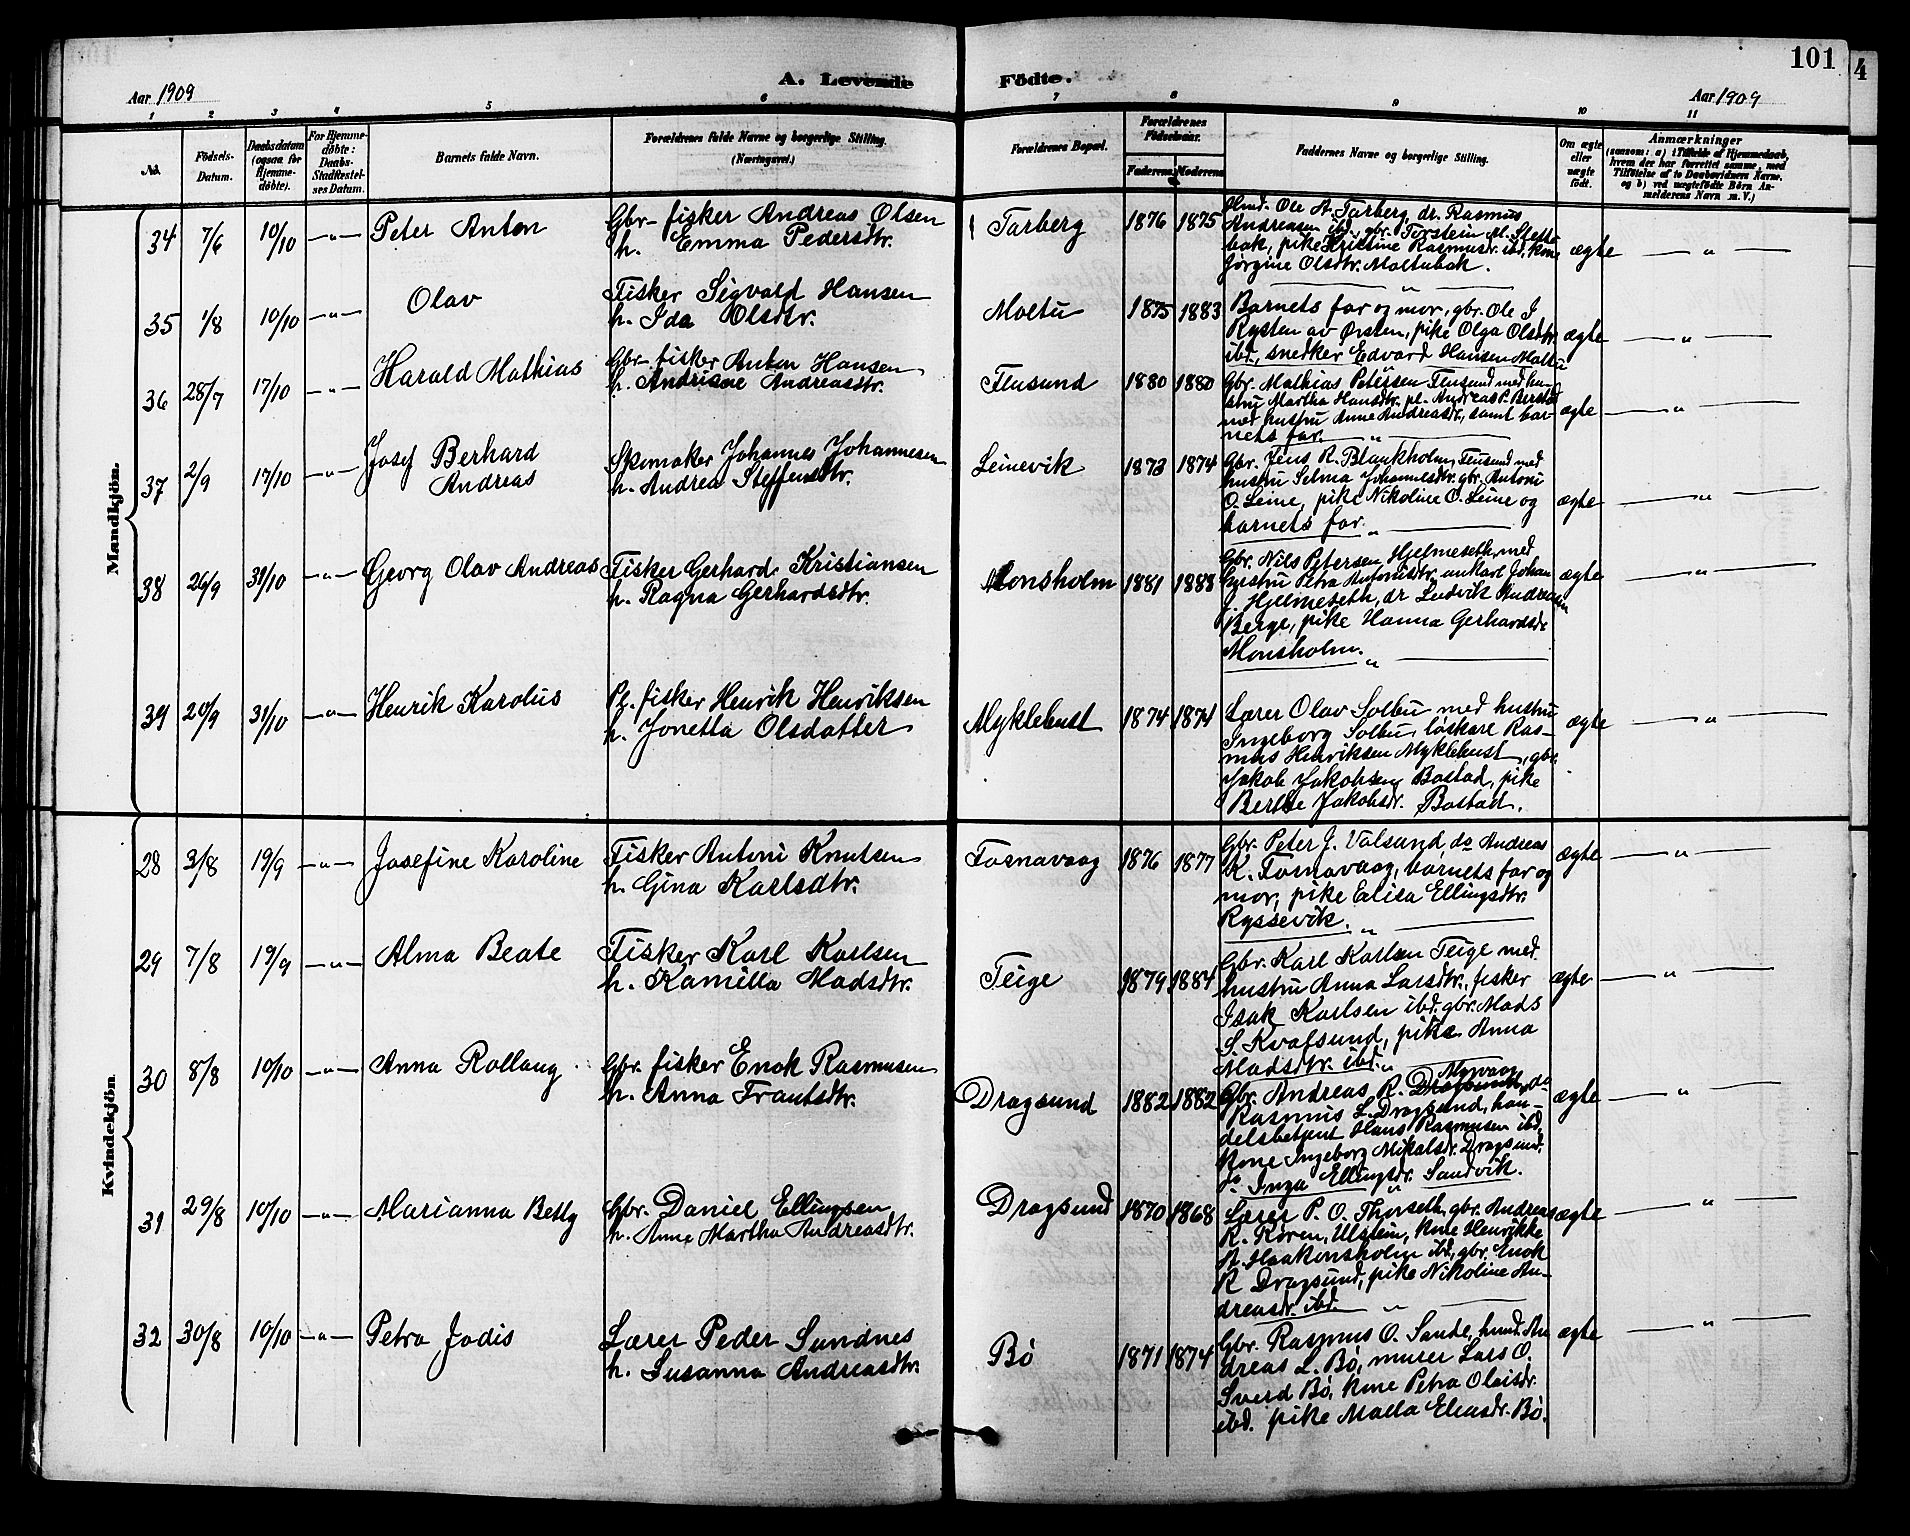 101
4
A. Levende Födte.
Aar 1909
Aar 1909
1 2 3 4 5 6 7 8 9 10 11
No.
Födsels-
Datum.
Daabsdatum
(ogsaa for
Hjemme-
döbte).
For Hjemme-
döbte:
Daabs-
Stadfæstel-
ses Datum.
Barnets fulde Navn.
Forældrenes fulde Navne og borgerlige Stilling.
(Næringsvei.)
Forældrenes Bopæl.
Forældrenes
Födselsaar.
Faderens Moderens
Faddernes Navne og borgerlige Stilling.
Om ægte
eller
uægte
født.
Anmærkninger
(saasom: a) i Tilfælde af Hjemmedaab,
hvem der har forrettet samme, med
Tilføielse af to Daabsvidners Navne,
og b) ved uægtefödte Börn An-
melderens Navn m. V.)
Mandkjön.
34 7/6 10/10 —„— Peter Anton
Gbr- fisker Andreas Olsen
h. Emma Pedersdtr.
Tarberg 1876 1875
Ole A. Tarberg, dr. Rasmus
Andreasen ibd., gbr. Torstein M.
bak, pike Kristine Rasmusdr. ibd, kone
Jørgine Olsdtr. Moltubak.
ægte —„—
35 1/8 10/10 —„— Olav
Fisker Sigvald Hansen
h. Ida Olsdtr.
Moltu 1875 1883
Barnets far og mor, gbr. Ole J
Rysten av Ørsten, pike Olga Olsdtr
ibd., snedker Edvard Hansen Moltu
ægte —„—
36 28/7 17/10 —„— Harald Mathias
Gbr- fisker Anton Hansen
h. Andrisne Andreasdtr.
Flusund 1880 1880
Gbr. Mathias Petersen Flusund med hu-
stru Martha Hansdtr. pl. Andreas P.
med hustru Anne Andreasdr., samt bar-
nets far.
ægte —„—
37 2/9 17/10 —„— Josef Berhard
Andreas
Skomaker Johannes Johannesen
h. Andrea Steffensdtr.
Leinevik 1873 1874
Gbr. Jens R. Blankholm, Flusund med
hustru Selma Johannesdtr. gbr. Antoni
O. Leine, pike Nikoline O. Leine og
barnets far.
ægte —„—
38 26/9 31/10 —„— Georg Olav Andreas
Fisker Gerhard Kristiansen
h. Ragna Gerhardsdtr.
Monsholm 1881 1888
Gbr. Nils Petersen Hjelmeseth, med
hustru Petra Antonisdtr, Karl Johan
J. Hjelmeseth, dr Ludvik Andreassen
Berge, pike Hanna Gerhardsdr
Monsholm.
ægte —„—
39 20/9 31/10 —„— Henrik Karolus
Pl. fisker Henrik Henriksen
h. Jonetta Olsdatter
Myklebust 1874 1874
Lærer Olav Solbu med hustru
Ingeborg Solbu, løskare Ras-
mus Henriksen Myklebust, gbr.
Jakob Jakobsen Bostad, pike
Berthe Jakobsdr. Bostad.
ægte —„—
Kvindekjön
28 3/8 19/9 —„— Josefine Karoline
Fisker Antoni Knutsen
h. Gina Karlsdtr.
Fosnavaag 1876 1877
Gbr. Peter J. Valsund, do Andreas
K. Fosnavaag, barnets far og
mor, pike Elisa Ellingsdtr.
Ryssevik.
ægte —„—
29 7/8 19/9 —„— Alma Beate
Fisker Karl Karlsen
h. Kamilla Madsdtr.
Teige 1879 1884
Gbr. Karl Karlsen Teige med
hustru Anna Larsdtr., fisker
Isak Karlsen ibd. gbr. Mads
S. Kvalsund, pike Anna
Madsdtr. ibd.
ægte —„—
30 8/8 10/10 —„— Anna Rollaug
Gbr. fisker Enok Rasmusen
h. Anna Frantsdtr.
Dragsund 1882 1882
Myrvaag
Gbr. Andreas R. Dragsund, do
Rasmus L. Dragsund, han-
delsbetjent Hans Rasmusen ibd.
kone Ingeborg Mikalsdr. Dragsund,
do Inga Ellingsdr. Sandvik.
ægte —„—
31 29/8 10/10 —„— Marianna Betty
Gbr. Daniel Ellingsen
h. Anne Martha Andreasdtr.
Dragsund 1870 1868
Lærer P. O. Thorseth, gbr. Andreas
K. Røren, Ulstein, kone Henrikke
A. Haakonsholm ibd, gbr. Enok
R Dragsund, pike Nikoline An-
dreasdr. ibd.
ægte —„—
32 30/8 10/10 —„— Petra Jodis
Lærer Peder Sundnes
h. Susanna Andreasdtr.
Bø 1871 1874
Gbr. Rasmus O. Sande, hmd. An
dreas L. Bø, murer Lars O.
Sverd Bø, kone Petra Olaisdr.
ibd. pike Malla Eliasdr. Bø.
ægte —„—